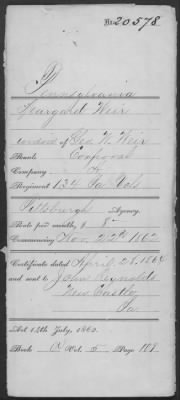 No. 20578
Pennsylvania
Margaret Weir
widow of Geo. W. Weir
Rank Corporal
Company
Regiment 134 Pa Vols
Pittsburgh Agency.
Rate per month, $ 8
Commencing Nov. 22d 1862
Certificate dated April 28, 1864
and sent to John Reynolds
New Castle
Pa
Act 14th July, 1862.
Book Vol. 5 Page 108